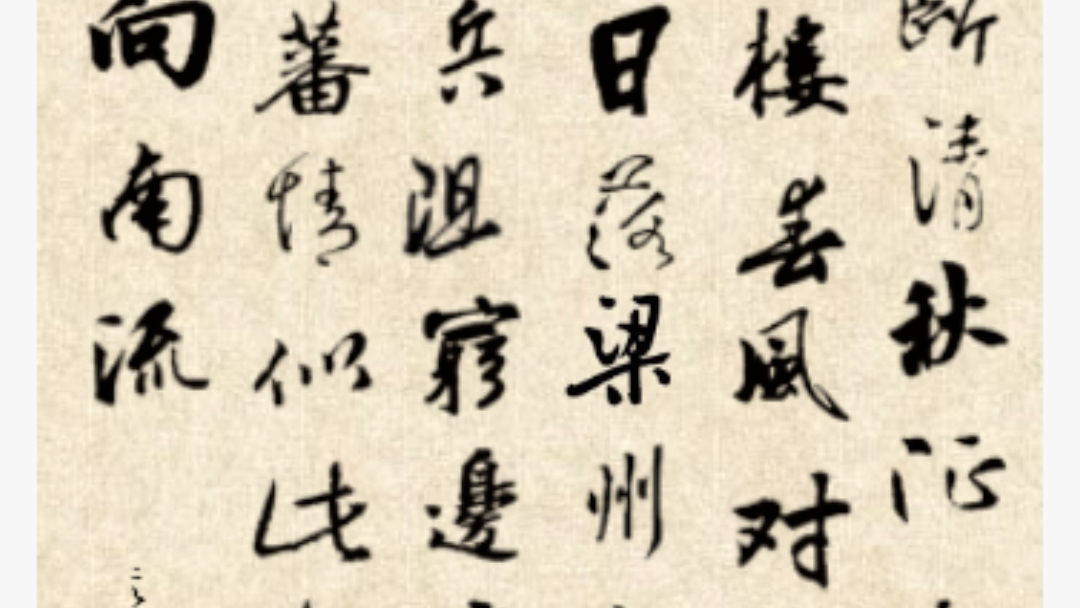 断清秋征
樓春風对
日落梁州
兵阻窮邊
蕃情似此
向南流